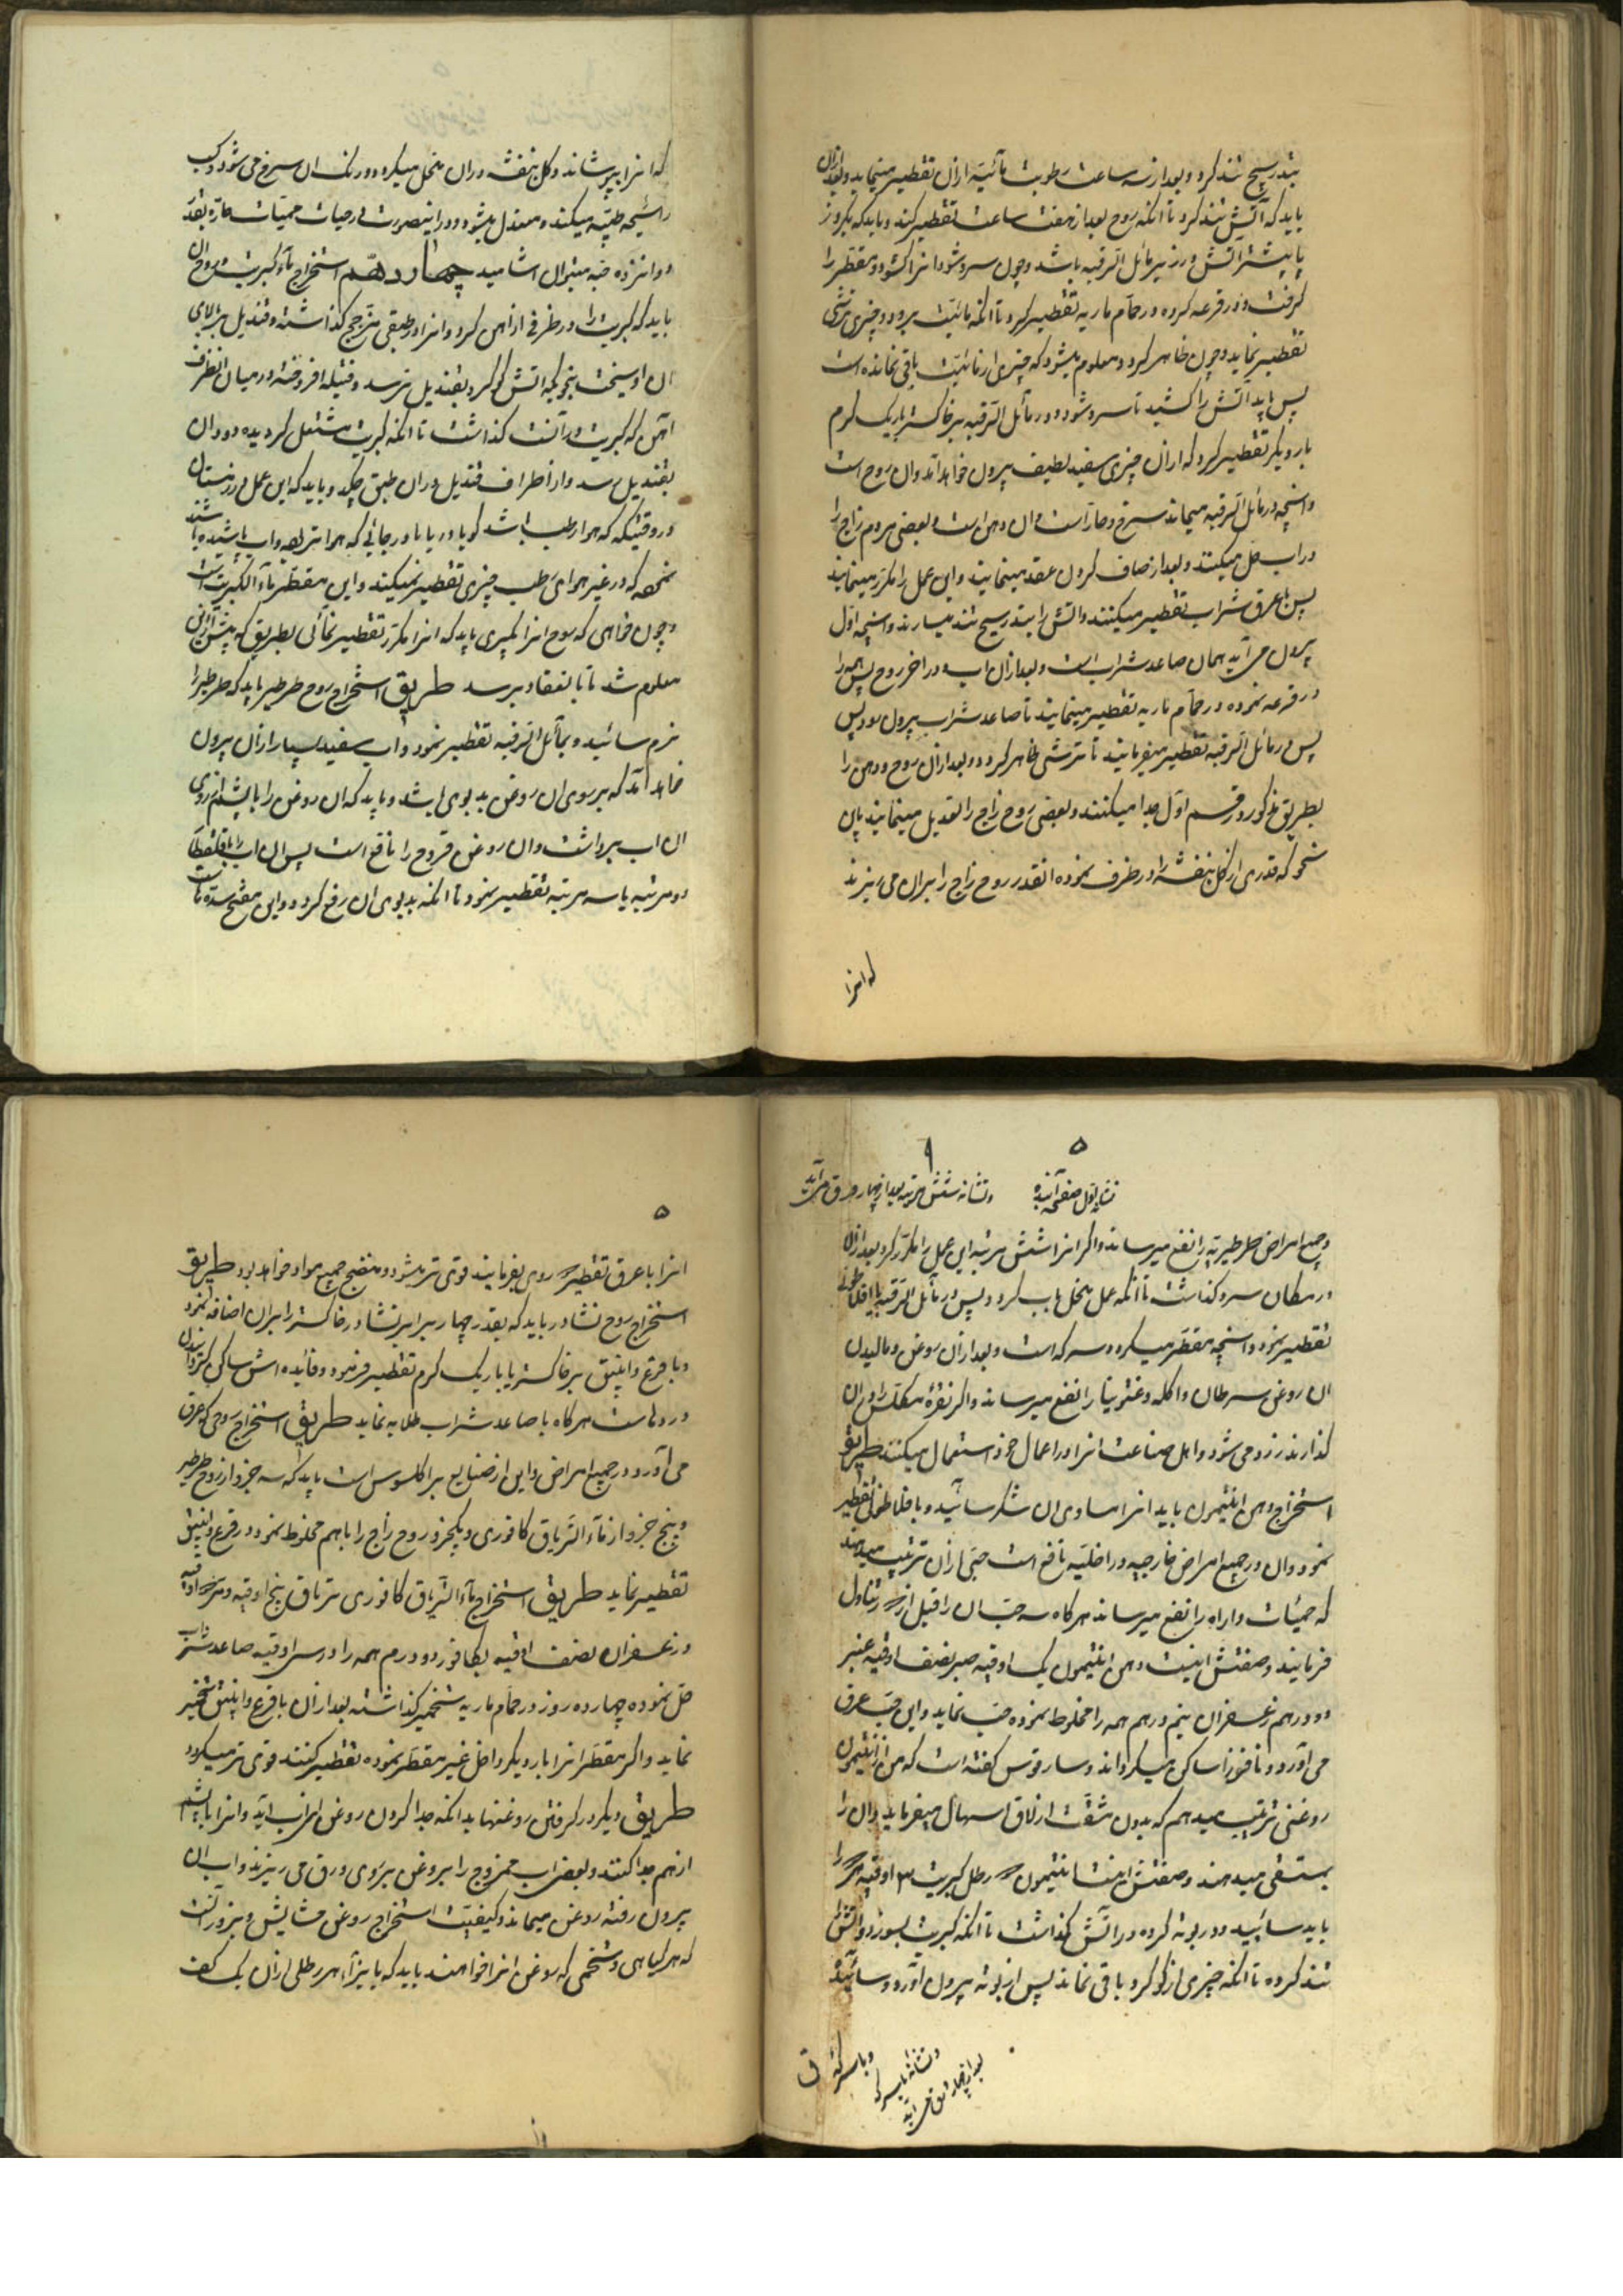 بتدریج تند کرد و بعد از سه ساعت رطوبت مائیة ازان تقطیر مینماید و بعد ازان
باید که آتش تند کرد تا انکه روح بعد از هفت ساعت تقطیر کند و باید که یکروز
یا بیشتر آتش در زیر مائل الرقبه باشد و چون سرد شود انرا کشود و مقطر را
گرفت و در قرعه کرده در حمام ماریه تقطیر کرد تا انکه مائیت برود و چیزی ترشی
تقطیر نماید و چون ظاهر کرد و معلوم میشود که چیزی از مائیت باقی نمانده است
پس باید آتش را کشید تا سرد شود و در مائل الرقبه بر خاکستر یا ریک کرم
بار دیگر تقطیر کرد که ازان چیزی سفید لطیف بیرون خواهد آمد وان روح است
وانچه در مائل الرقبه میماند سرخ و حار است وان دهن است و بعضی مردم زاج را
در اب حل میکنند و بعد از صاف کردن عقد مینمایند و این عمل را مکرر مینمایند
پس با عرق شراب تقطیر میکنند و اتش را بتدریج تند میسازند و انچه اول
بیرون می آید همان صاعد شراب است و بعد ازان اب و در اخر روح پس همه را
در قرعه نموده در حمام ماریه تقطیر مینمایند تا صاعد شراب بیرون رود پس
پس در مائل الرقبه تقطیر میفرمایند تا ترشی ظاهر کردد و بعد ازان روح و دهن را
بطریق مذکور در قسم اول جدا میکنند و بعضی روح زاج را تعدیل مینمایند باین
نحو که قدری از کل بنفشه را در ظرف نموده انقدر روح زاج را بران می ریزند
که انرا
که انرا بپوشاند و کل بنفشه دران منحل میکردد و رنک ان سرخ می شود و کسب
رائحه طیبه میکند و معتدل میشود و در اینصورت در حیات حمیات حاره بقدر
دوانزده حبه میتوان اشامید چهاردهم استخراج ماء کبریت و روح ان
باید که کبریت را در ظرفی از اهن کرد و انرا در طبقی مزجج کذاشته و قندیل بر بالای
ان اویخت بنحویکه اتش کوکرد بقندیل نرسد و فتیله افروخته در میان انظرف
اهن که کبریت درآنست کذاشت تا انکه کبریت مشتعل کردیده و دود ان
بقندیل رسد و از اطراف قندیل دران طبق چکد و باید که این عمل در زمستان
در وقتیکه که هوا رطب باشد کویا دریا یا در جائی که هوا تر بوده و اب پاشیده باشند
نمود که در غیر هوای رطب چیزی تقطیر نمیکند و این مقطر ماء الکبریت است
و چون خواهی که روح انرا بکیری باید که انرا مکرر تقطیر نمائی بطریق که پیش ازین
معلوم شد تا بانعقاد برسد طریق استخراج روح طرطیر باید که طرطیر را
نرم سائید و بمائل الرقبه تقطیر نمود و اب سفید بسیار ازان بیرون
خواهد آمد که بر روی ان روغن بد بوی باشد و باید که ان روغن را با پشم از روی
ان اب برداشت وان روغن قروح را نافع است پس ان اب را
دو مرتبه یا سه مرتبه تقطیر نمود تا انکه بد بوی ان رفع کردد و این مفتح سده هاست
۵
نشانه اول صفحه آینده
و نشانه شش مرتبه بعد از چهار ورق می آید
و جمیع امراض طرطیریه را نفع میرساند و اکر انرا شش مرتبه این عمل را مکرر کرد بعد ازان
در مکان سرد کذاشت تا انکه عمل منحل باب کردد پس در مائل الرقبه با
تقطیر نمود و انچه مقطر میکردد سرکه است و بعد ازان روغن و مالیدن
ان روغن سرطان و اکله و غنغرینا را نفع میرساند و اکر نقره مکلس را دران
کذارند زرد می شود و اهل صناعت انرا در اعمال خود استعمال میکنند طریق
استخراج دهن انتیمون باید انرا مساوی ان شکر سائید و با تقطیر
نمود وان در جمیع امراض خارجیه و داخلیه نافع است حبی ازان ترتیب میدهند
که حمیات و اراه را نفع میرساند هر کاه سه حب ان را قبل از تناول
فرمایند و صفتش اینست دهن انتیمون یک اوقیه صبر نصف اوقیه عنبر
دو درهم زعفران نیم درهم همه را مخلوط نموده حب نماید و این حب عرق
می آورد و نافوز را ساکن میکرداند و سارقوس کفته است که من از انتیمون
روغنی ترتیب میدهم که بدون مشقت ازلاق اسهال میفرماید وان را
بمستسقی میدهند و صفتش اینست انتیمون رطل کبریت ۳ اوقیه هر را
باید سائید و در بوته کرده در آتش کذاشت تا انکه کبریت بسوزد و اتش
تند کرده تا انکه چیزی از کوکرد باقی نماند پس از بوته بیرون آورد و سائید
و نشانه با سرکه
بعد از چهار ورق می آید
و با سرکه
۵
انرا با عرق تقطیر روی بفرمایند قوی تر میشود و منضج جمیع مواد خواهد بود طریق
استخراج روح نشادر باید که بقدر چهار برابر نشادر خاکستر را بران اضافه نمود
و با قرع و انبیق بر خاکستر یا با ریک کرم تقطیر فرمود و فائده اش ساکن کردانیدن
دردهاست هر کاه با صاعد شراب طلا به نماید طریق استخراج روحی که عرق
می آورد در جمیع امراض و این از صنایع براکلسوس است باید که سه جزو از روح طرطیر
و پنج جزو از ماء التریاق کافوری و یکجزو روح زاج را با هم مخلوط نمود و در قرع و انبیق
تقطیر نماید طریق استخراج ماء التریاق کافوری تریاق پنج اوقیه و مر اوقیه
و زعفران نصف اوقیه کافور دو درم همه را در سی اوقیه صاعد شراب
حل نموده چهارده روز در حمام ماریه بتخمیر کذاشته بعد ازان با قرع و انبیق تقطیر
نماید و اکر مقطر انرا بار دیکر داخل غیر مقطر نموده تقطیر کنند قوی تر میکردد
طریق دیکر در کرفتن روغنها بدانکه جدا کردن روغن از اب آید و انرا با پشم
از هم جدا کنند و بعضی اب ممزوج را بروغن بر روی ورق می ریزند و آب ان
بیرون رفته روغن میماند و کیفیت استخراج روغن حشایش و بزور آنست
که هر کیاهی و تخمی که روغن انرا خواهند باید که باز آء هر رطلی ازان یک کف